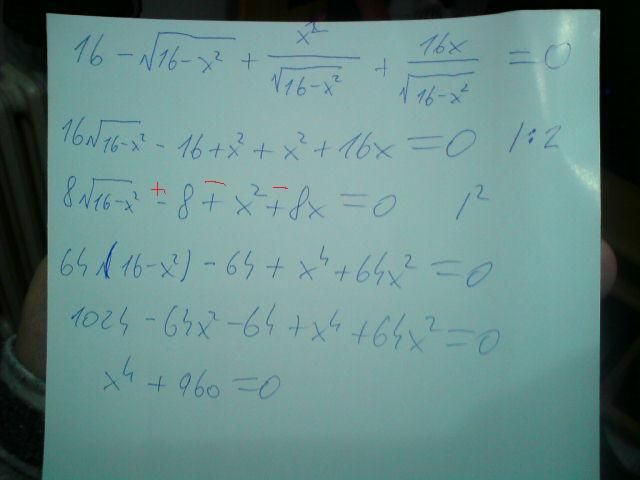 16 - √(16-x²) + x²/√(16-x²) + 16x/√(16-x²) = 0
16√(16-x²) - 16 + x² + x² + 16x = 0 /:2
8√(16-x²) - 8 + x² + 8x = 0 /² + - -
64(16-x²) - 64 + x⁴ + 64x² = 0
1024 - 64x² - 64 + x⁴ + 64x² = 0
x⁴ + 960 = 0